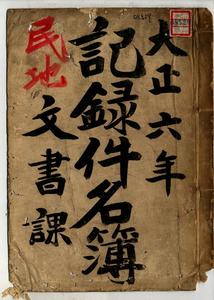 大正六年
記録件名簿
文書課
民地